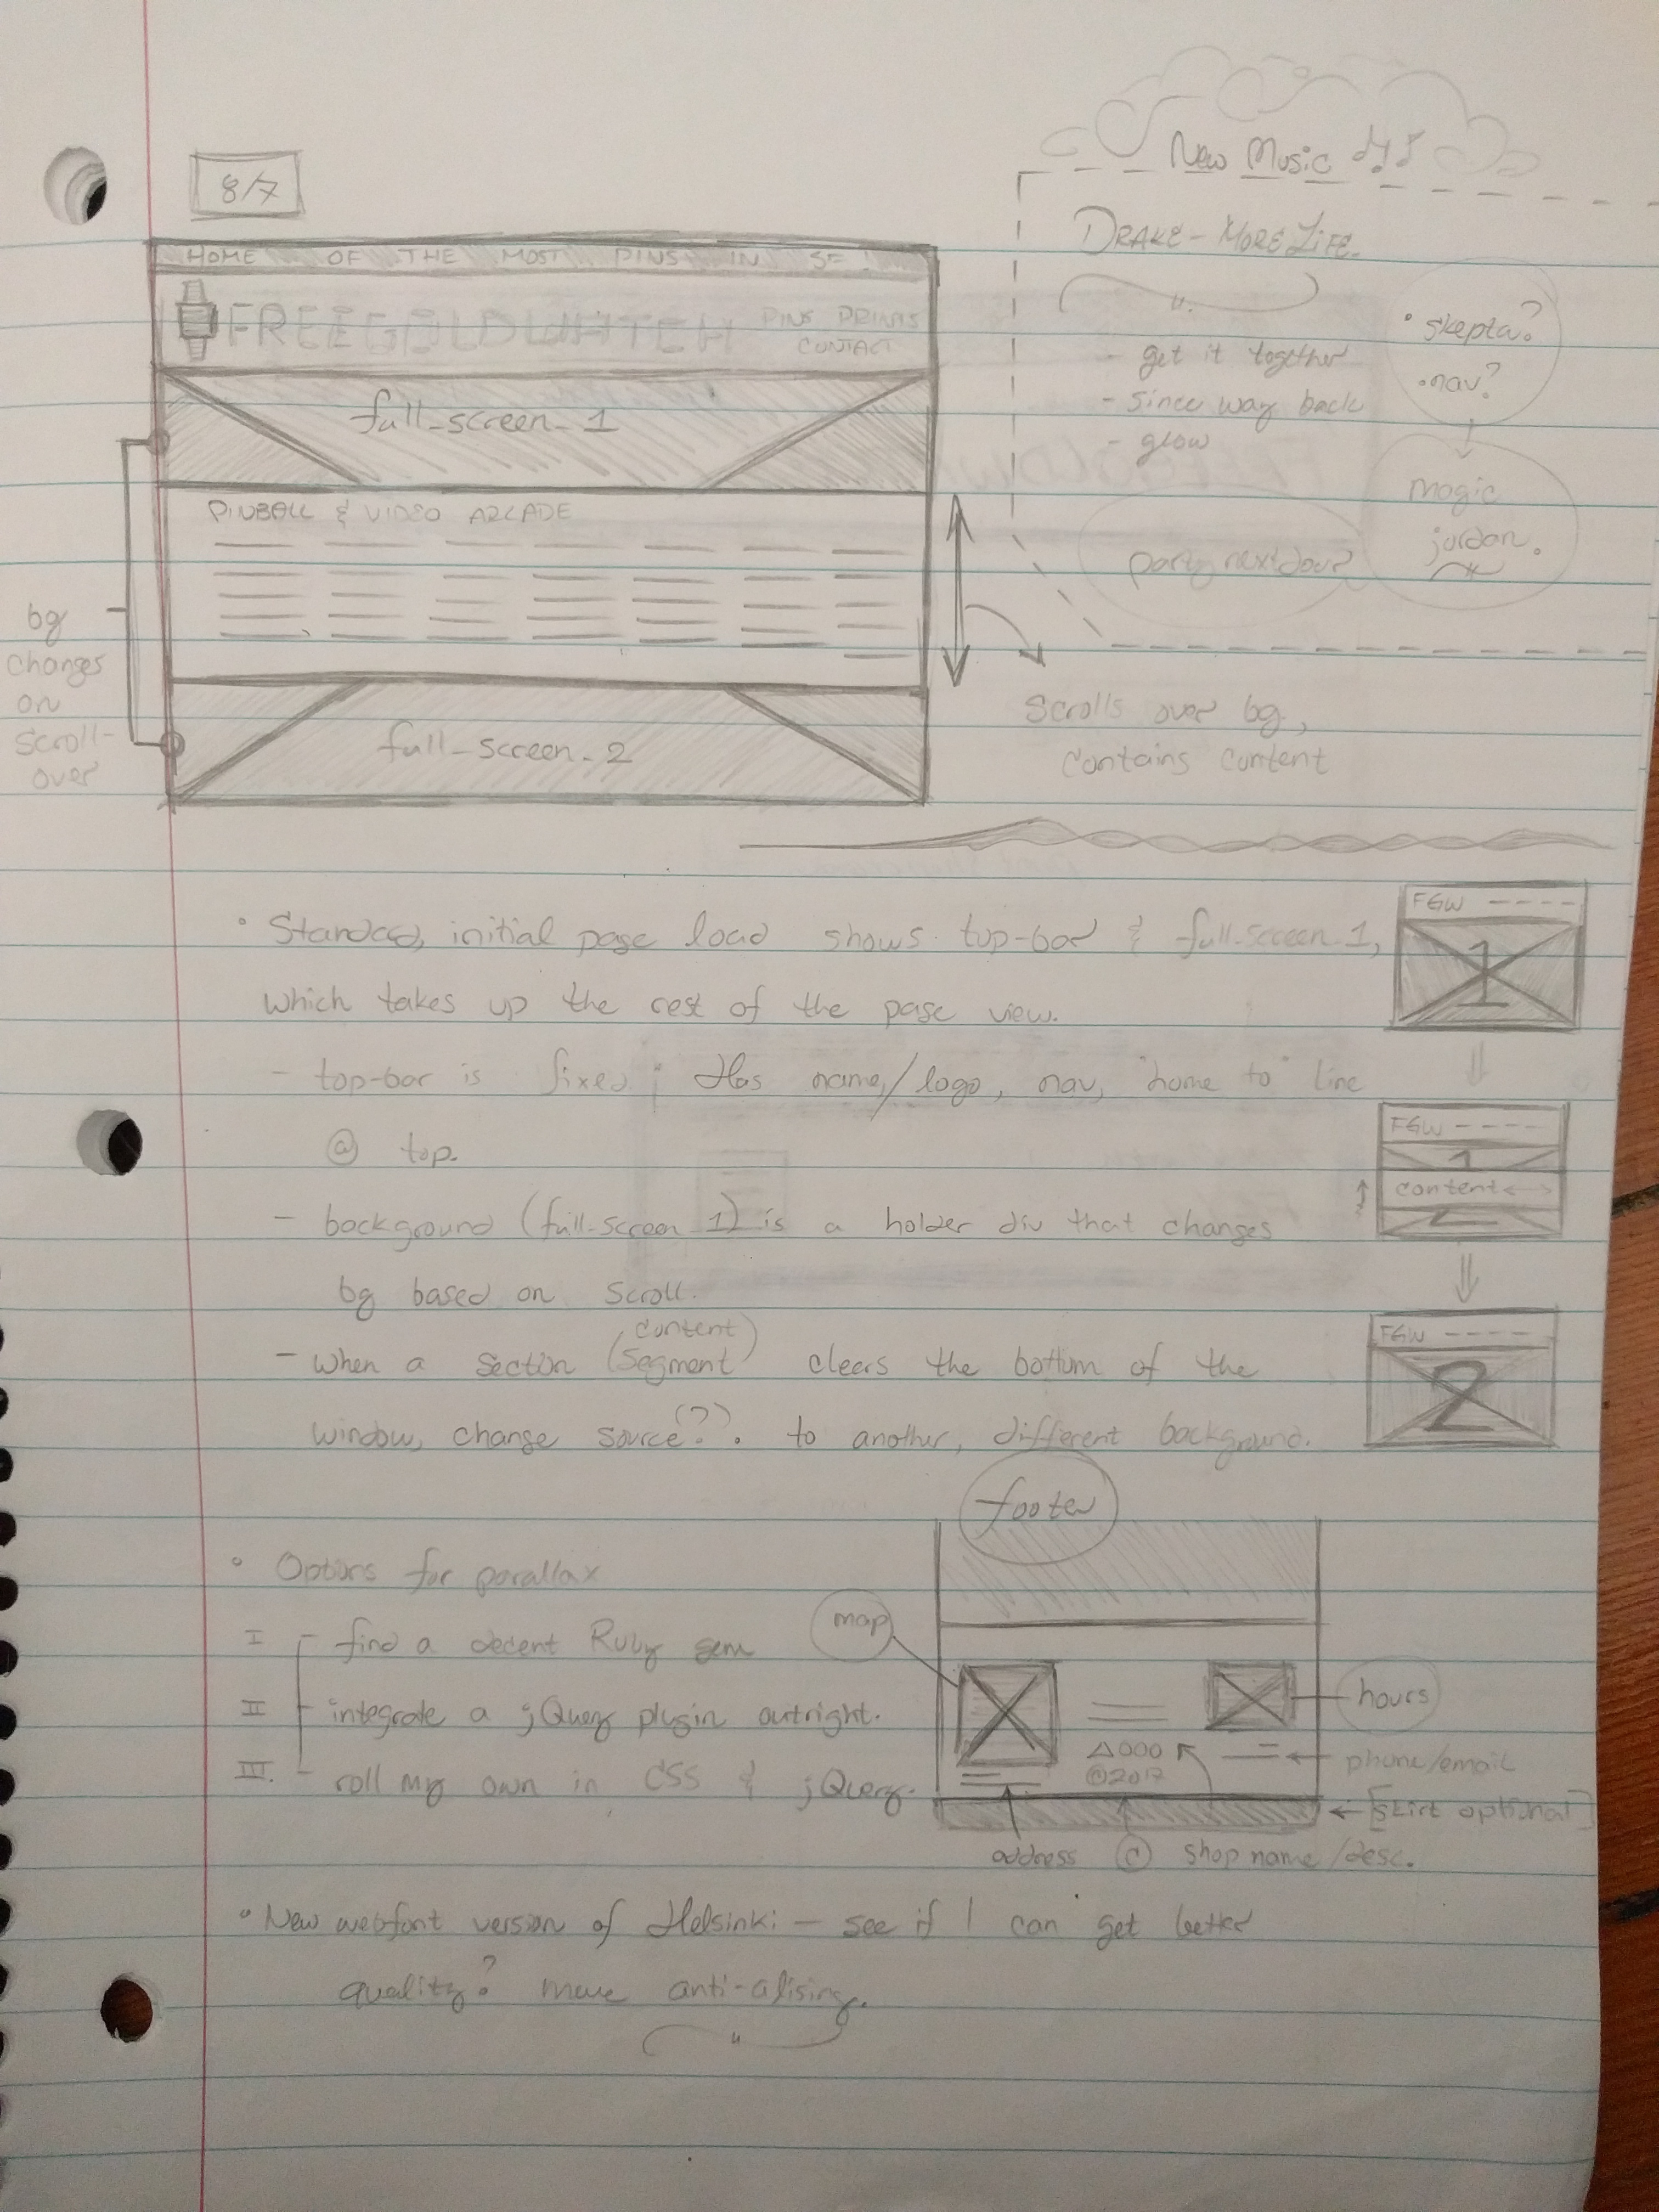 8/7
HOME OF THE MOST PINS IN SF!
FREEGOLDWATCH
PINS PRINTS
CONTACT
full-screen-1
PINBALL & VIDEO ARCADE
full-screen-2
bg
changes
on
scroll-
over
New Music
DRAKE - MORE LIFE.
- get it together
- since way back
- glow
• skepta?
• nav?
magic
jordan.
partynextdoor?
Scrolls over bg,
contains content
• Standard, initial page load shows top-bar & full-screen-1,
which takes up the rest of the page view.
- top-bar is fixed; Has name/logo, nav, "home to" line
@ top.
- background (full-screen-1) is a holder div that changes
bg based on scroll.
content
- when a section (segment) clears the bottom of the
window, change source(?)? to another, different background.
FGW ----
1
FGW ----
1
content
2
FGW ----
2
• Options for parallax
I - find a decent Ruby gem
II - integrate a jQuery plugin outright.
III. - roll my own in CSS & jQuery.
footer
map
hours
phone/email
©2017
[skirt optional]
address © shop name/desc.
• New webfont version of Helsinki - see if I can get better
quality? more anti-alising.